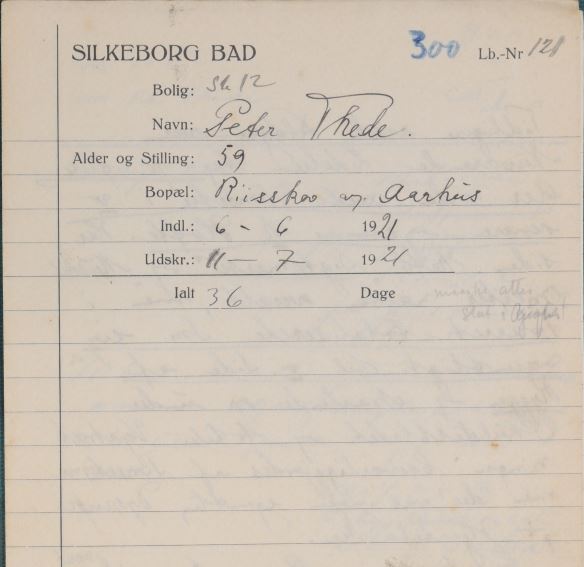 SILKEBORG BAD 300 Lb.-Nr 121
Bolig: Sk 12
Navn: Peter Thede.
Alder og Stilling: 59
Bopæl: Riisskov pr. Aarhus
Indl.: 6 - 6 1921
Udskr.: 11 - 7 1921
Ialt 36 Dage